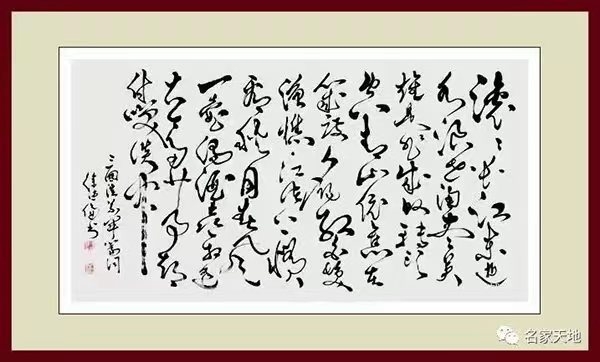 滚滚长江东逝
水浪花淘尽英
雄是非成败转头
空青山依旧在
几度夕阳红白发
渔樵江渚上惯
看秋月春风
一壶浊酒喜相逢
古今多少事都
付笑谈中
三国演义开篇词
名家天地